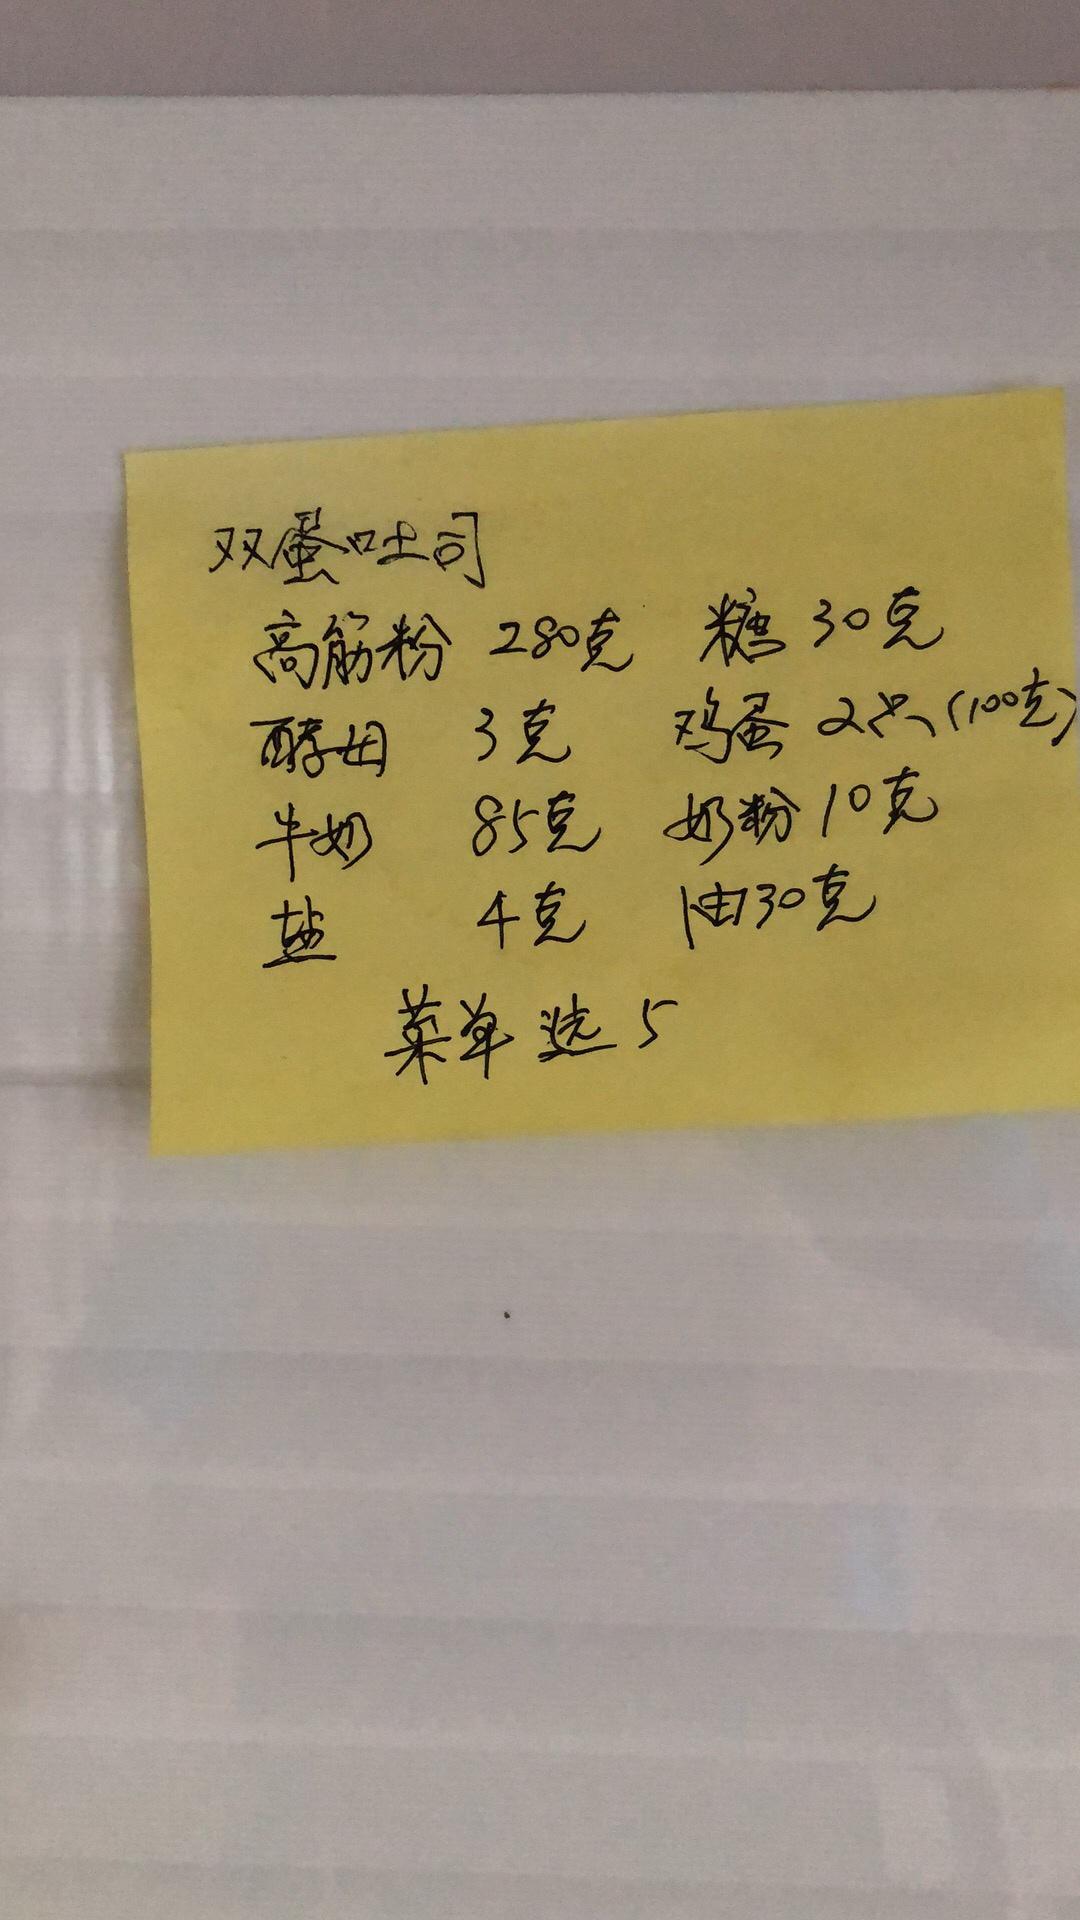 双蛋吐司
高筋粉 280克 糖 30克
酵母 3克 鸡蛋 2只(100克)
牛奶 85克 奶粉 10克
盐 4克 油30克
菜单选5